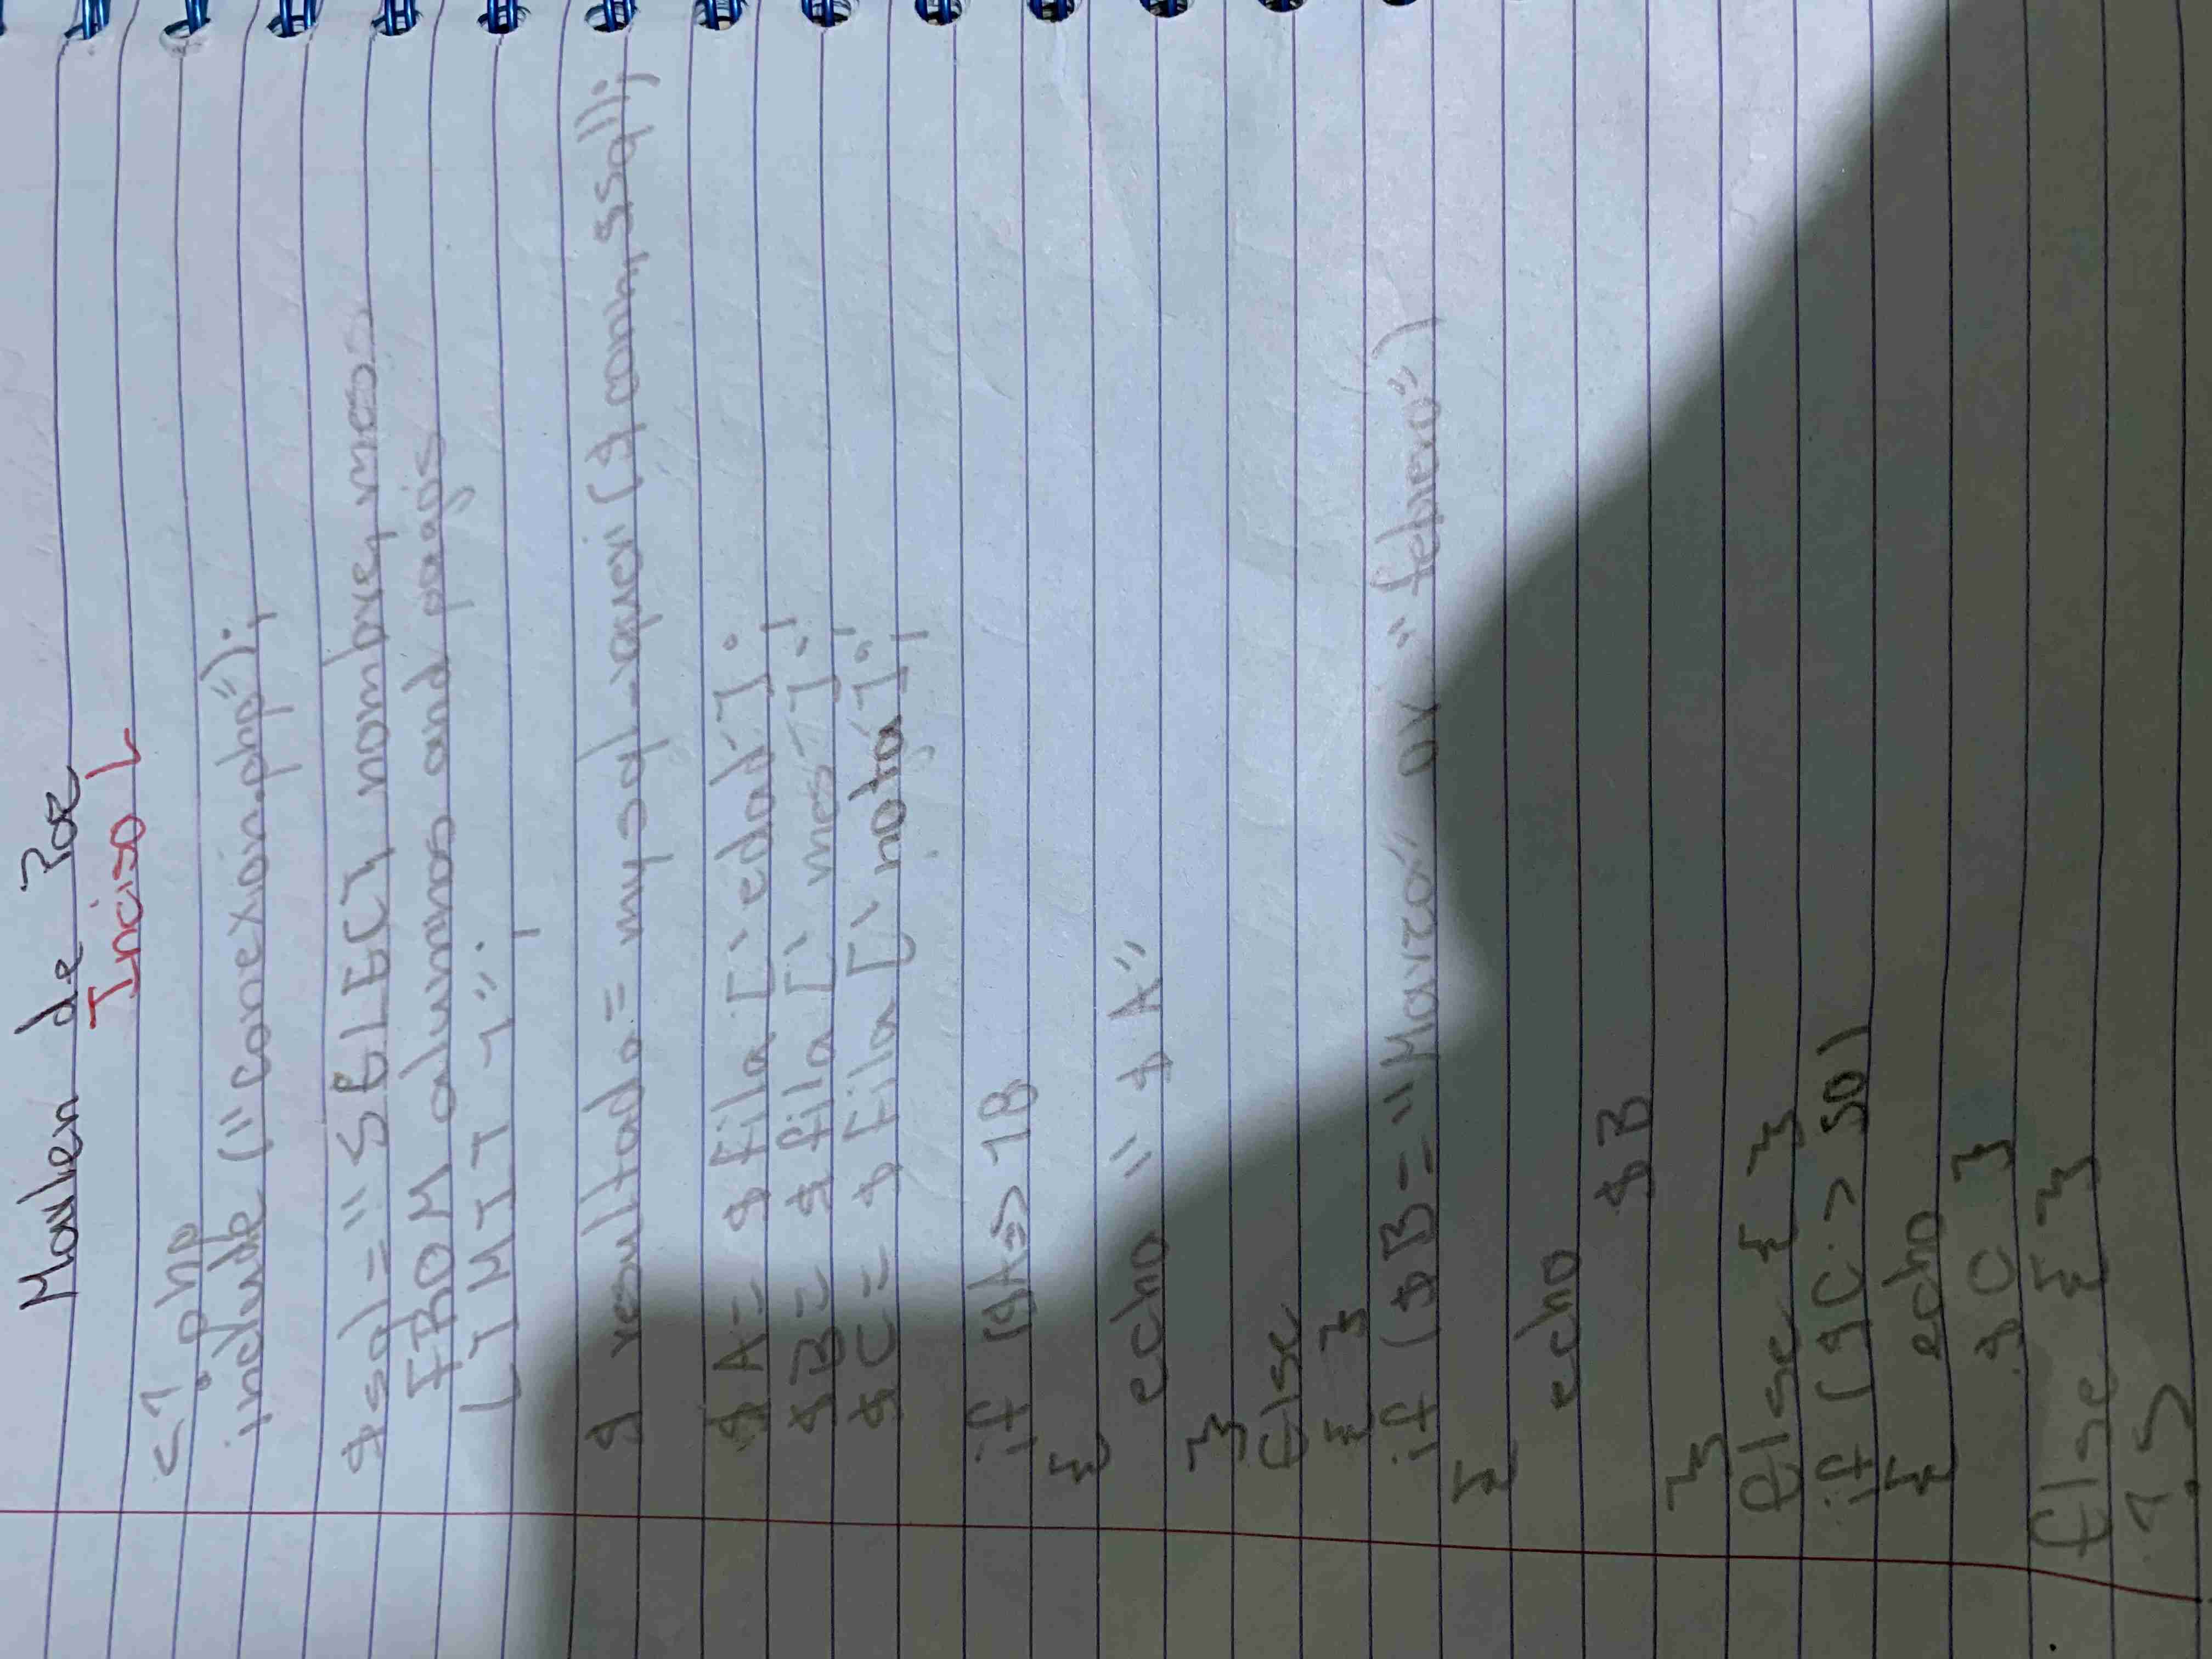 Maulien de Paz
Inciso L
<? php
include ("conexion.php");
$sql = "SELECT nombre, mes
FROM alumnos and pagos
LIMIT 1";
$ resultado = mysql-queri ($conn, $sql);
$A = $fila ['edad'];
$B = $fila ['mes'];
$C = $fila ['nota'];
if ($A=>18
{
echo "$A"
}
Else
{ }
if ($B="Marzo" or "febrero")
{
echo
$B
}
Else { }
if ($C > 50)
{ echo
$C }
Else { }
?>